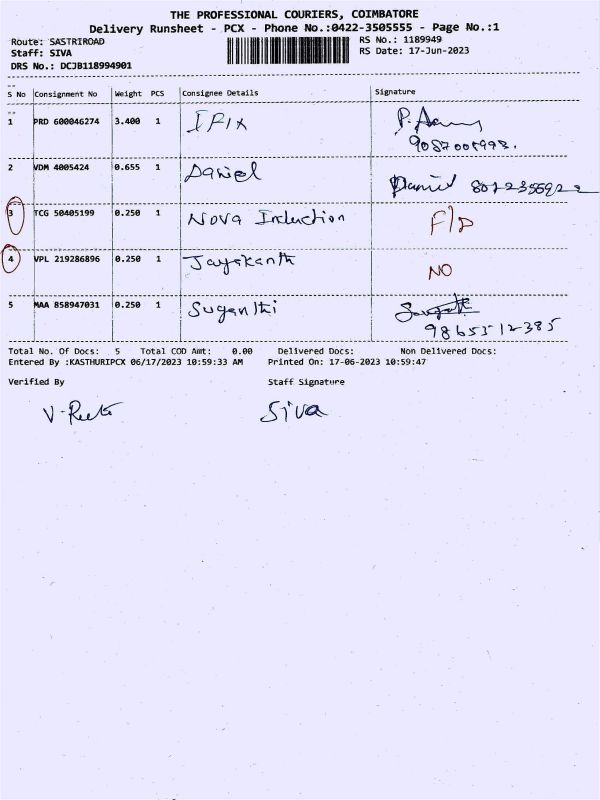 THE PROFESSIONAL COURIERS, COIMBATORE
Delivery Runsheet - PCX - Phone No.:0422-3505555 - Page No.:1
Route: SASTRIROAD RS No.: 1189949
Staff: SIVA RS Date: 17-Jun-2023
DRS No.: DCJB118994901
S No Consignment No Weight PCS Consignee Details Signature
1 PRD 600046274 3.400 1 IFIX
2 VDM 4005424 0.655 1 Daniel Daniel
3 TCG 50405199 0.250 1 Nova Induction F/D
4 VPL 219286896 0.250 1 Jayakanth NO
5 MAA 858947031 0.250 1 Suganthi
98655 12385
Total No. Of Docs: 5 Total COD Amt: 0.00 Delivered Docs: Non Delivered Docs:
Entered By :KASTHURIPCX 06/17/2023 10:59:33 AM Printed On: 17-06-2023 10:59:47
Verified By Staff Signature
Siva